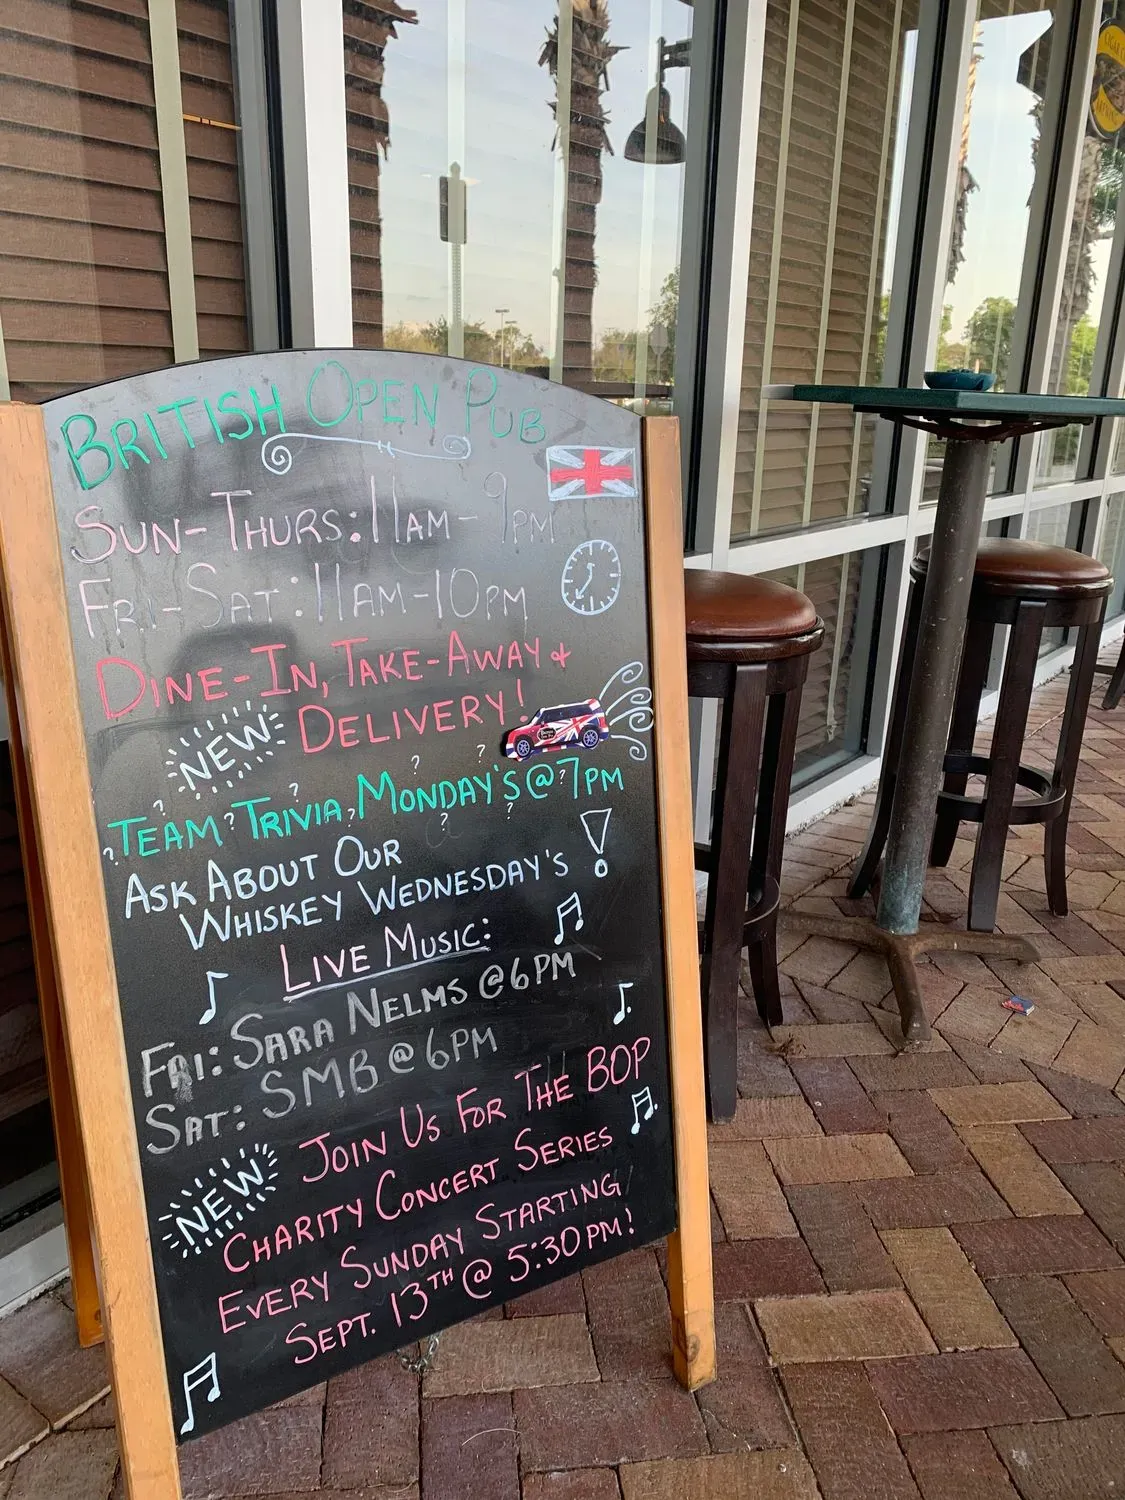 BRITISH OPEN PUB
SUN-THURS: 11AM- 9PM
FRI-SAT: 11AM-10PM
DINE-IN, TAKE-AWAY &
DELIVERY!
NEW
TEAM TRIVIA, MONDAY'S @ 7PM
ASK ABOUT OUR
WHISKEY WEDNESDAY'S !
LIVE MUSIC:
FRI: SARA NELMS @ 6PM
SAT: SMB @ 6PM
NEW
JOIN US FOR THE BOP
CHARITY CONCERT SERIES
EVERY SUNDAY STARTING
SEPT. 13TH @ 5:30PM!
CIGAR